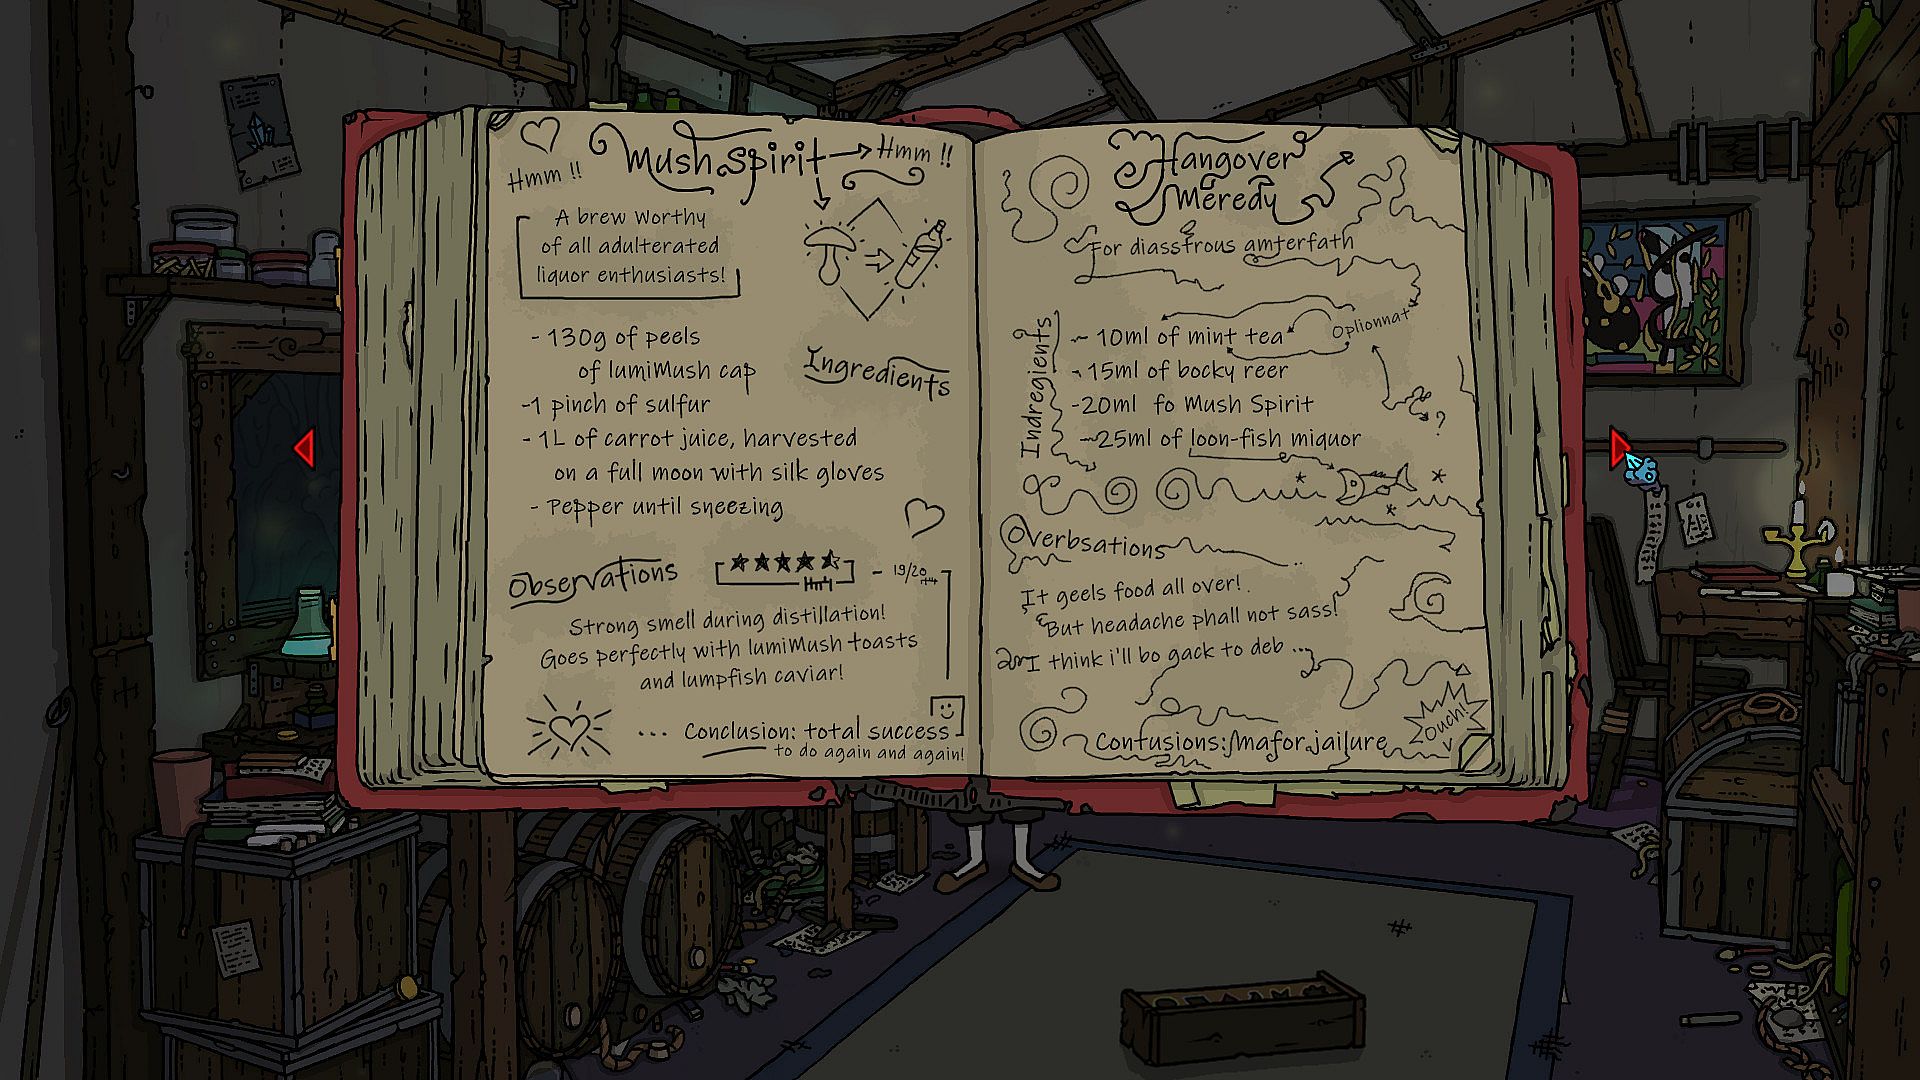 Hmm !!
Mush Spirit
Hmm !!
A brew worthy
of all adulterated
liquor enthusiasts!
Ingredients
- 130g of peels
of lumiMush cap
-1 pinch of sulfur
- 1L of carrot juice, harvested
on a full moon with silk gloves
- Pepper until sneezing
Observations
- 19/20
Strong smell during distillation!
Goes perfectly with lumiMush toasts
and lumpfish caviar!
... Conclusion: total success
to do again and again!
Hangover
Meredy
For diasstrous amterfath
Indregients
- 10ml of mint tea
Oplionnat
- 15ml of bocky reer
?
-20ml fo Mush Spirit
-25ml of loon-fish miquor
Overbsations
It geels food all over!
But headache phall not sass!
I think i'll bo gack to deb ...
Contusions: mafor jailure
Ouch!